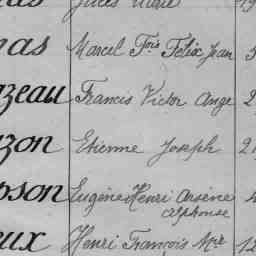 Jules Marie
nas Marcel Fois Félix Jean
zeau Francis Victor Ange 2
zon Etienne Joseph 2
pson Eugène Henri Arsène
Alphonse
eux Henri François Mie 12